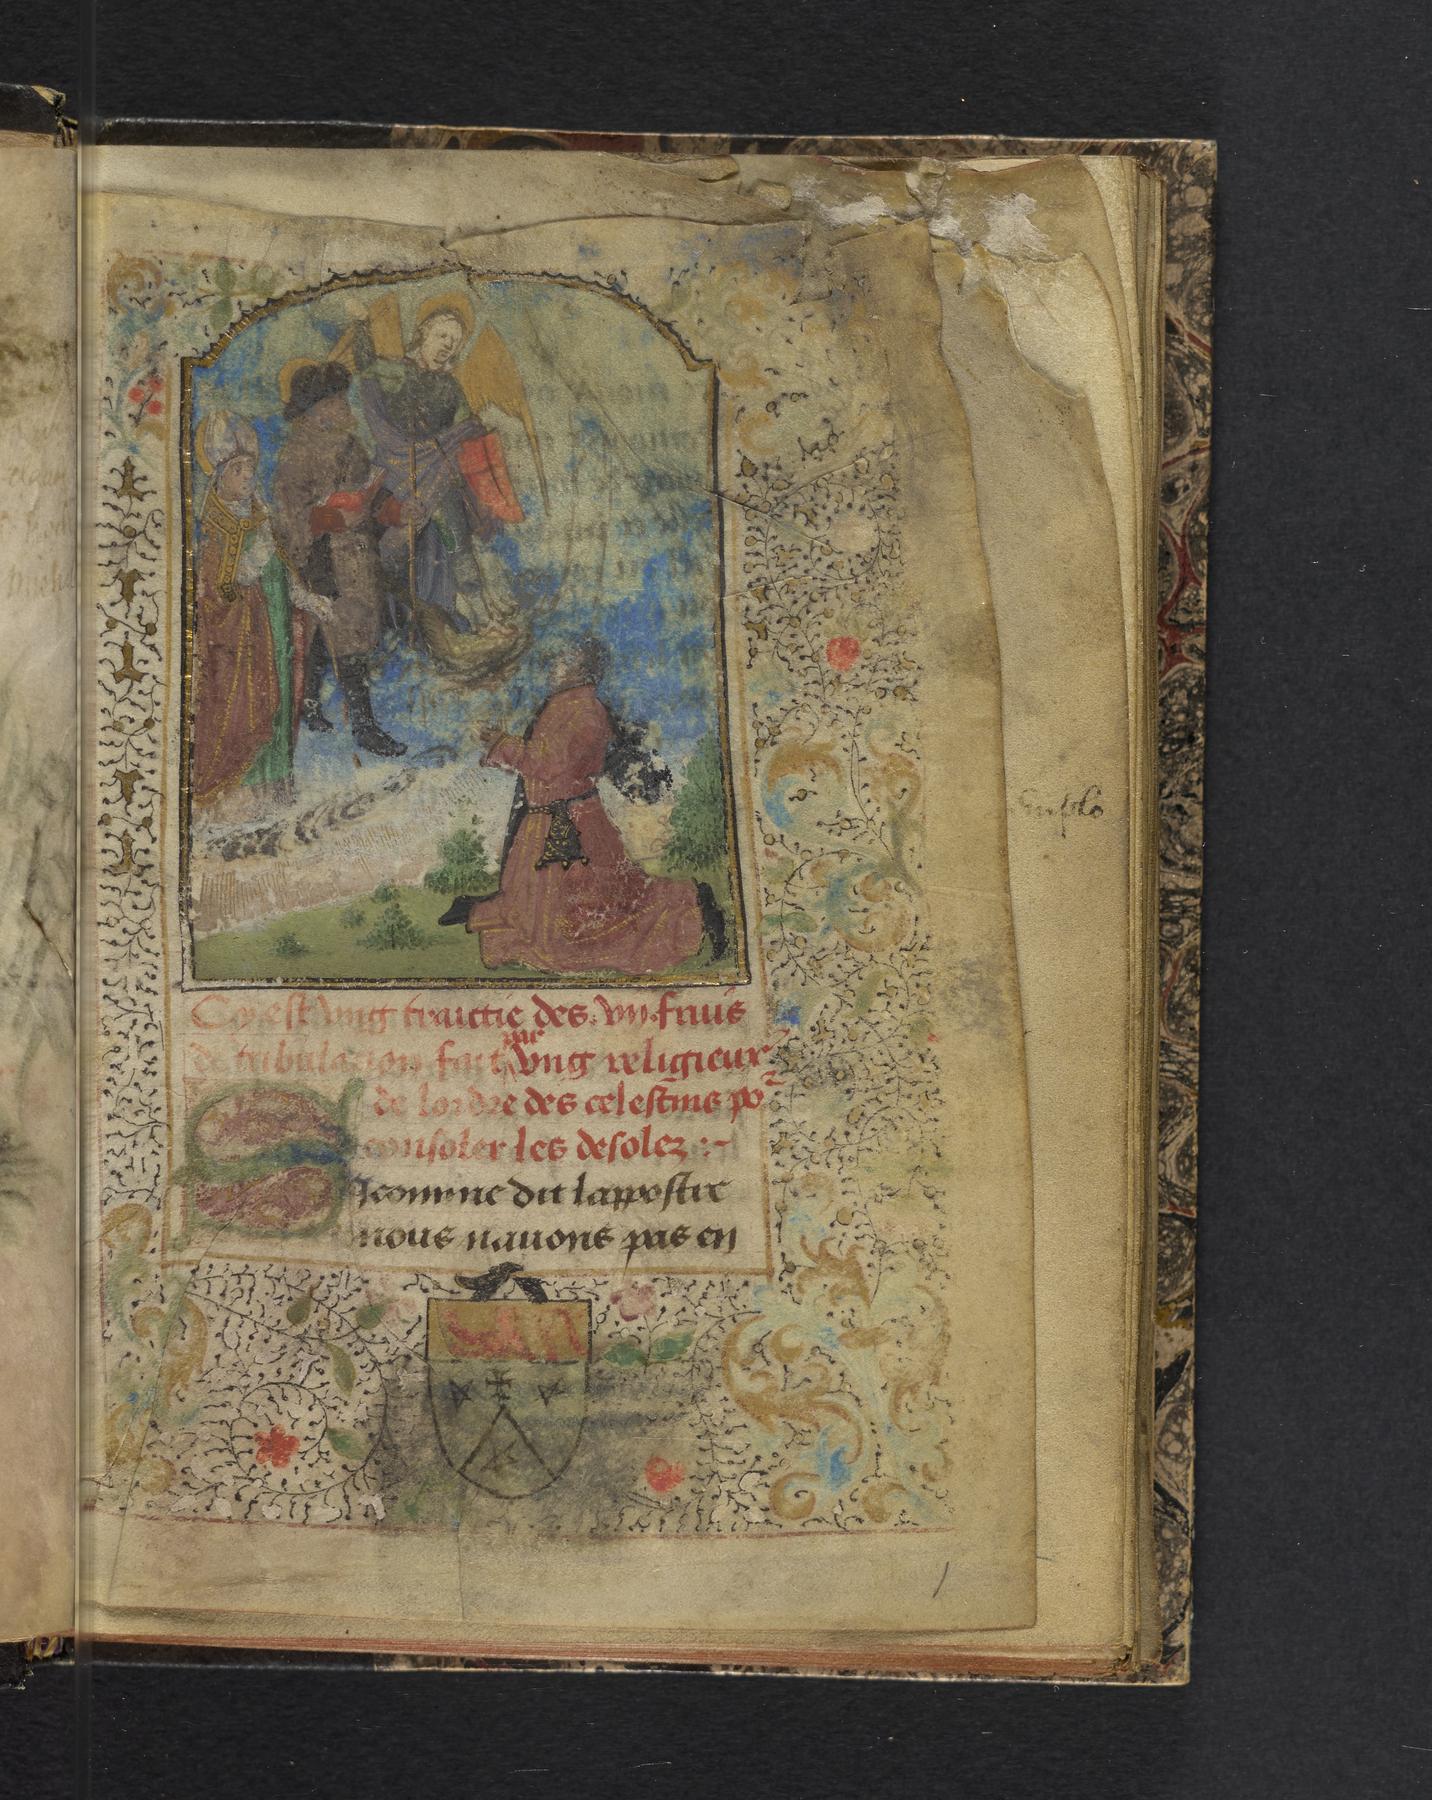 Cy est ung traictie des .vii. fruis
de tribulacion fait par ung religieux
de lordre des celestins po2
consoler les desolez :~
Sicomme dit lappostre
nous nauons pas en
1